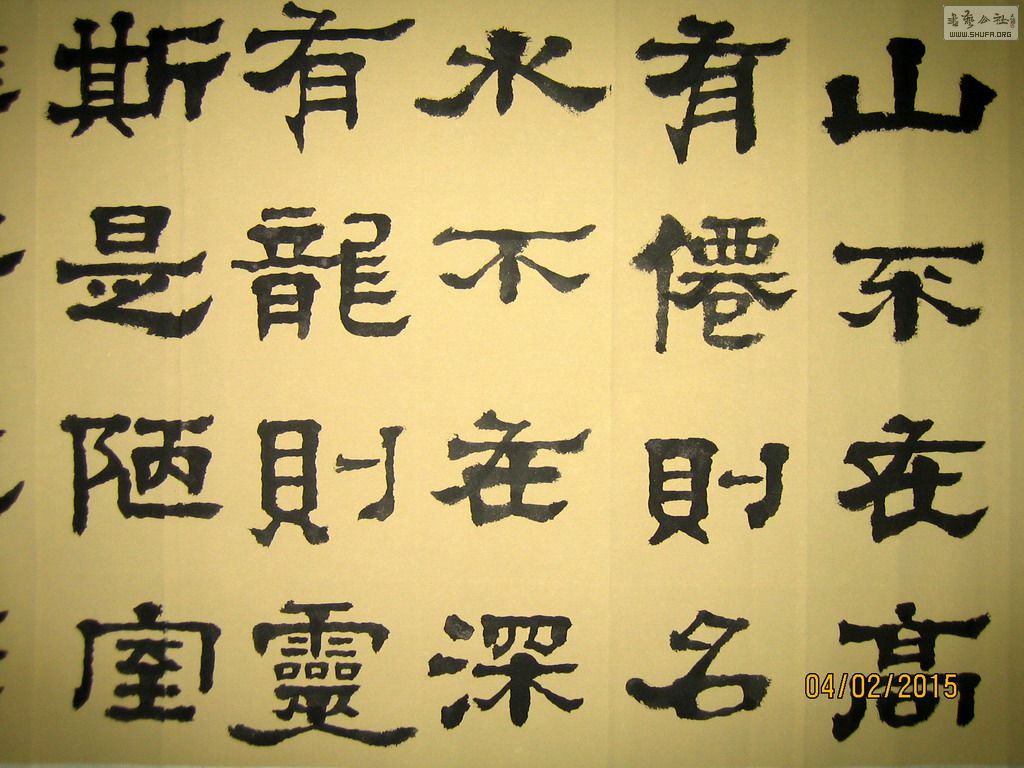 山不在高
有僊則名
水不在深
有龍則靈
斯是陋室
书艺公社
WWW.SHUFA.ORG
04/02/2015